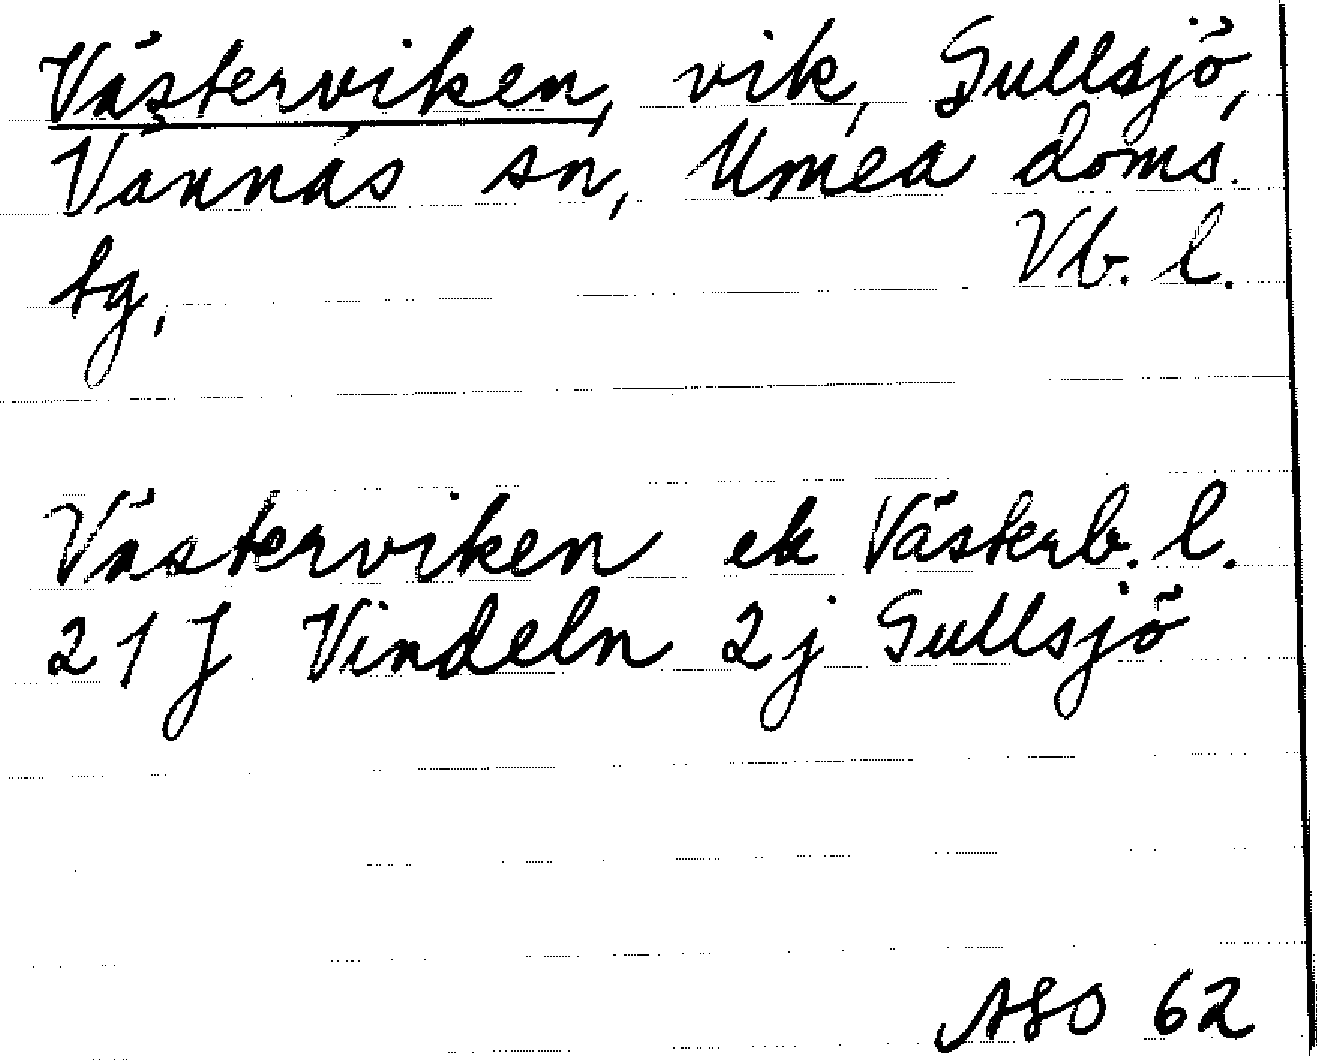 Västerviken, vik, Gullsjö,
Vännäs sn, Umeå doms.
tg, Vb. l.
Västerviken ek Västerb. l.
21 J Vindeln 2j Gullsjö
ASO 62